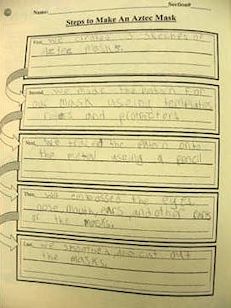 Name: Section#
Steps to Make An Aztec Mask
First, We created 3 sketches of
aztec masks.
Second, We made the patern for
our mask useing templates
and protractors
Next, We traced the patern onto
the metal useing a pencil
Then, We embossed the eyes,
nose, mouth, ears, and other parts
of the masks.
Last, We smoothed, and cut out
the masks.